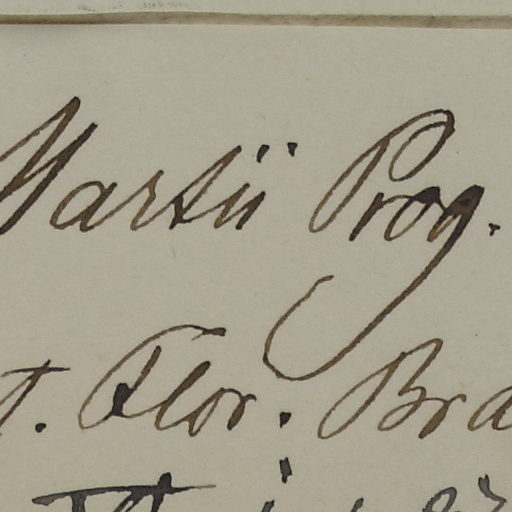 Martii Prog.
t. Flor. Bra